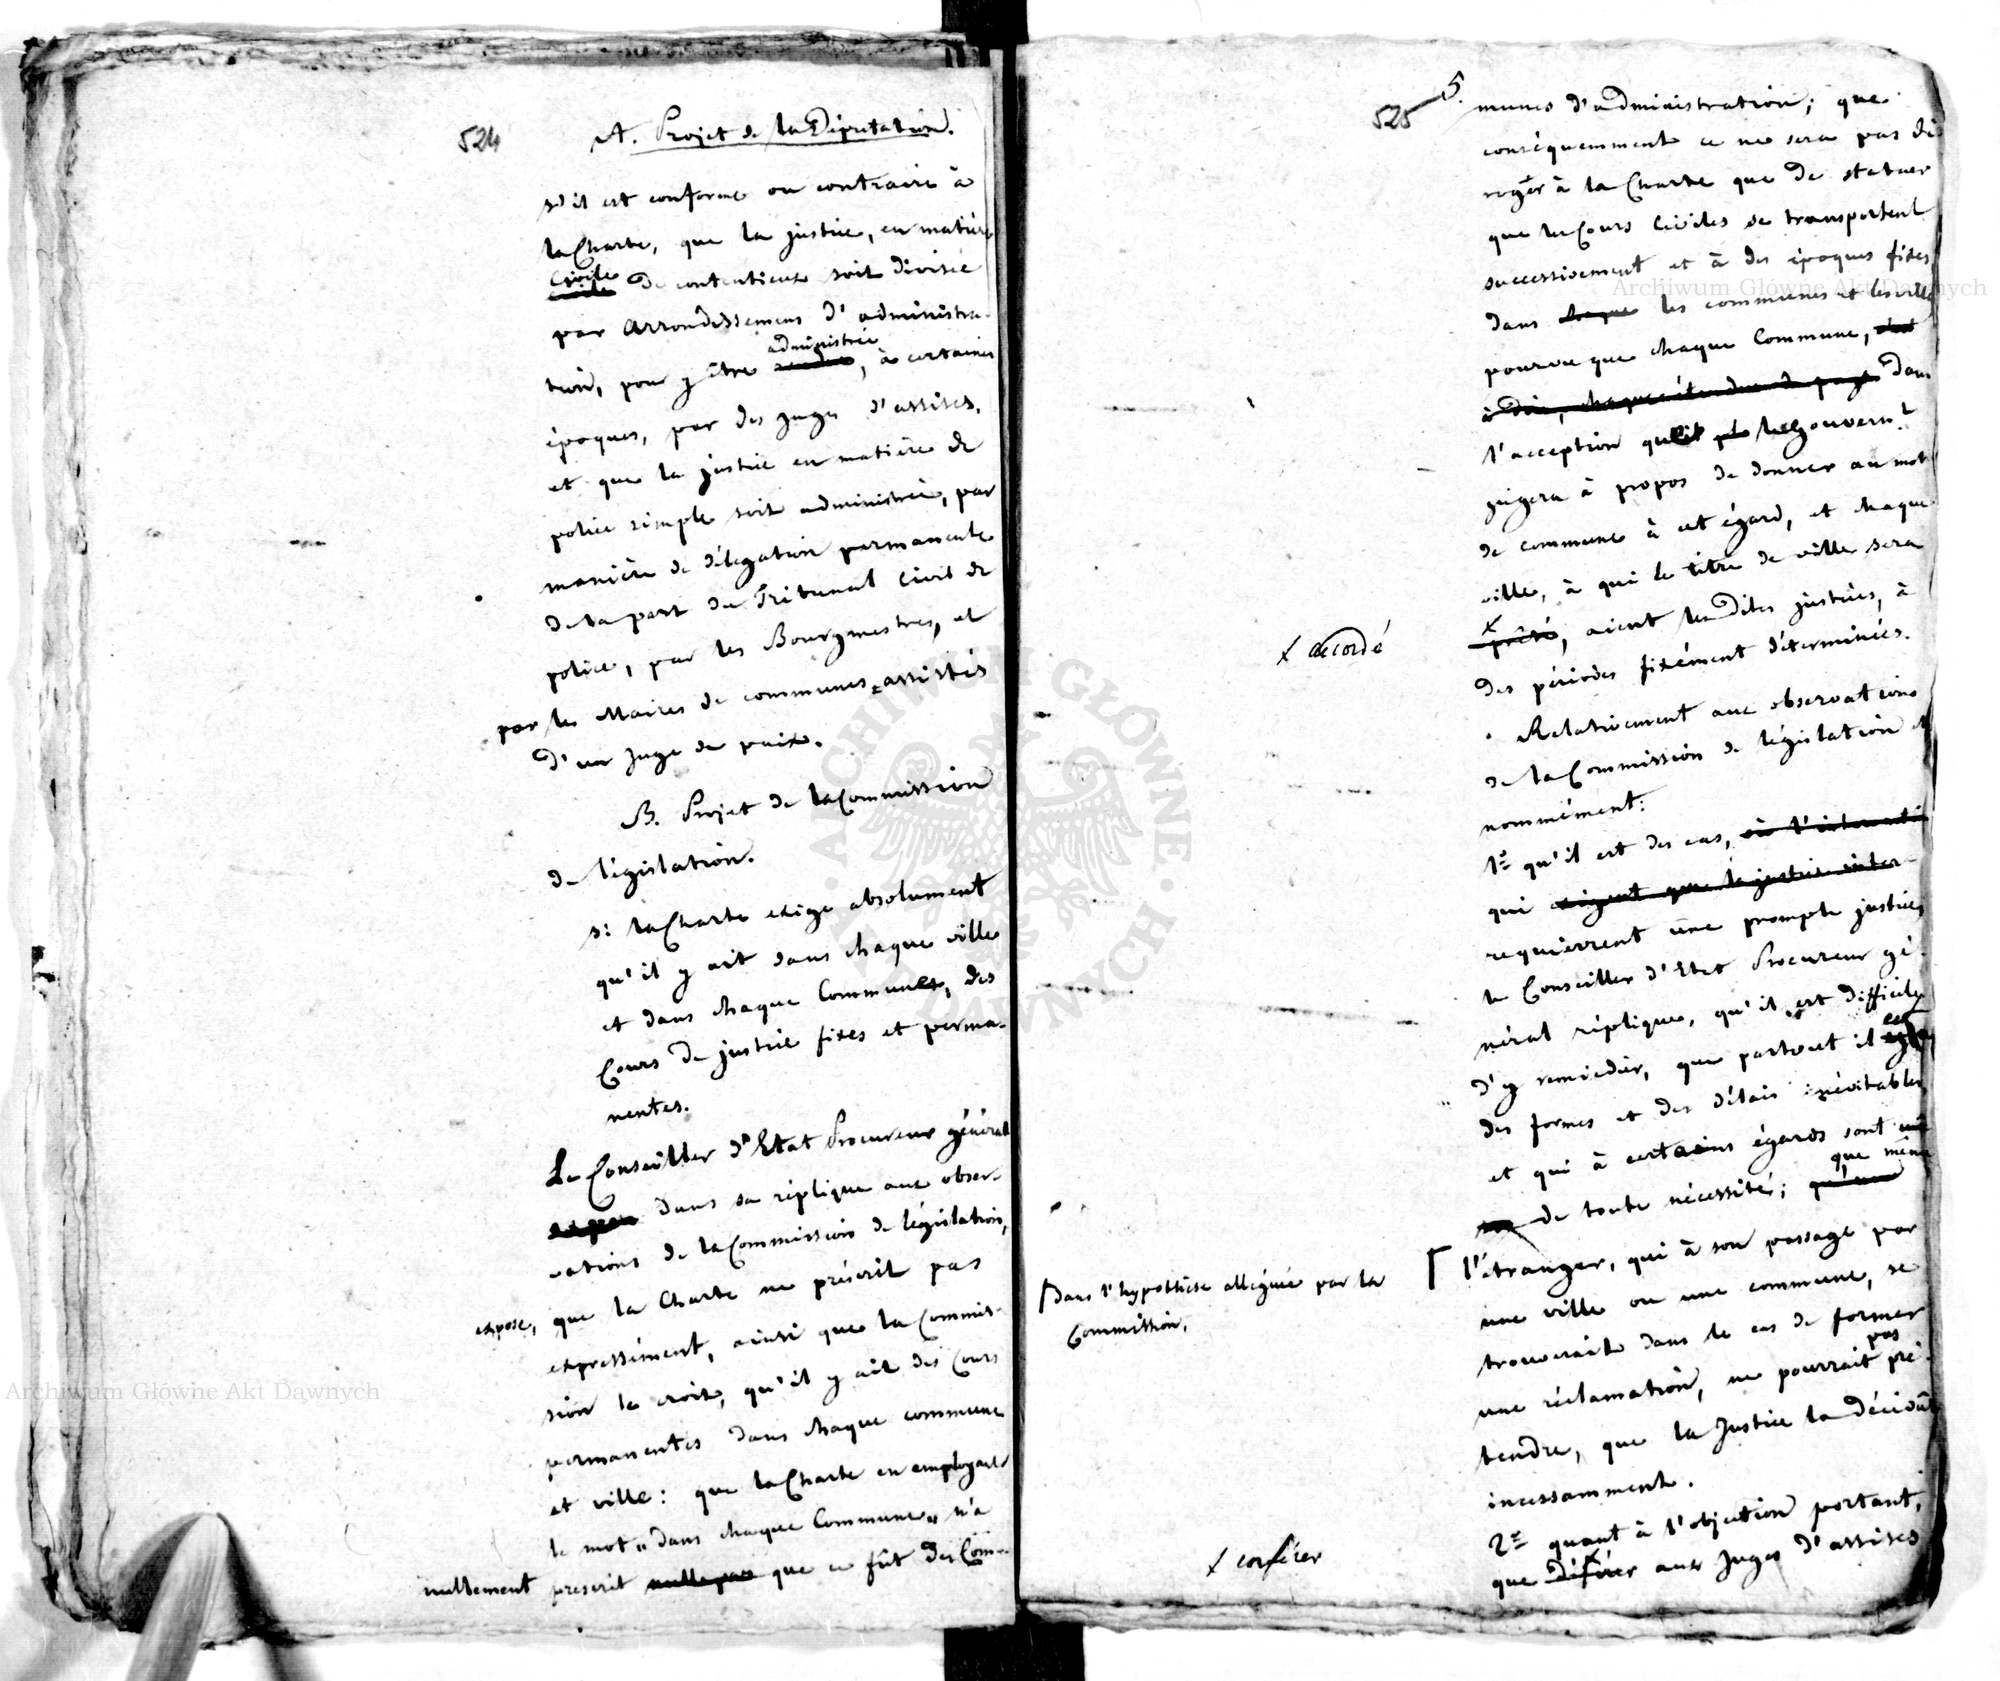 524
A. Projet de la Députation.
s'il est conforme ou contraire à
la Charte, que la justice, en matière
civile
civile de contentieux soit divisée
par arrondissemens d'administra-
administrée
tion, pour y être rendue, à certaines
époques, par des juges d'assises,
et que la justice en matière de
police simple soit administrée, par
manière de délégation permanente
de la part du Tribunal civil de
police, par les Bourgmestres, et
par les Maires de communes, assistés
d'un juge de paix.
B. Projet de la Commission
de législation.
si la Charte exige absolument
qu'il y ait dans chaque ville
et dans chaque Commune, des
Cours de justice fixes et perma-
nentes.
Le Conseiller d'Etat Procureur général
dans sa réplique aux obser-
vations de la Commission de législation,
expose, que la Charte ne préscrit pas
expressément, ainsi que la Commis-
sion le croit, qu'il y ait des Cours
permanentes dans chaque commune
et ville: que la Charte en employant
le mot „dans chaque Commune" n'a
nullement prescrit nulle part que ce fût des Com-
525 5.
munes d'administration; que
conséquemment ce ne sera pas dé-
roger à la Charte que de statuer
que les Cours civiles se transportent
successivement et à des époques fixes
dans chaque les communes et les villes
pourvu que chaque Commune,
dans
l'acception qu'il le gouvern.t
jugera à propos de donner au mot
de commune à cet égard, et chaque
ville, à qui le titre de ville sera
x
prêté, aient les dites justices, à
x accordé
des périodes fixément déterminées.
Relativement aux observations
de la Commission de législation et
nommément:
1.º qu'il est des cas, où l'interêt
qui exigent que la justice inter-
requièrent une prompte justice,
le Conseiller d'Etat Procureur gé-
néral réplique, qu'il est difficile
d'y remédier, que partout il est
des formes et des délais inévitables
et qui à certains égards sont
que même
de toute nécessité;
Dans l'hypothèse alléguée par la
Commission,
l'étranger, qui à son passage par
une ville ou une commune, se
trouverait dans le cas de former
pas
une réclamation, ne pourrait pré-
tendre, que la justice la décidât
incessamment.
2.º quant à l'objection portant,
x conférer
que déférer aux juges d'assises
Archiwum Główne Akt Dawnych
Archiwum Główne Akt Dawnych
ARCHIWUM GŁÓWNE AKT DAWNYCH